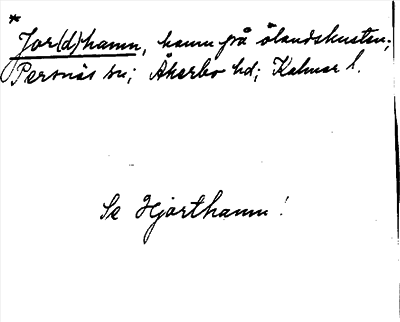 *
Jor(d)hamn, hamn på ölandskusten;
Persnäs sn; Åkerbo hd; Kalmar l.
Se Hjorthamn!